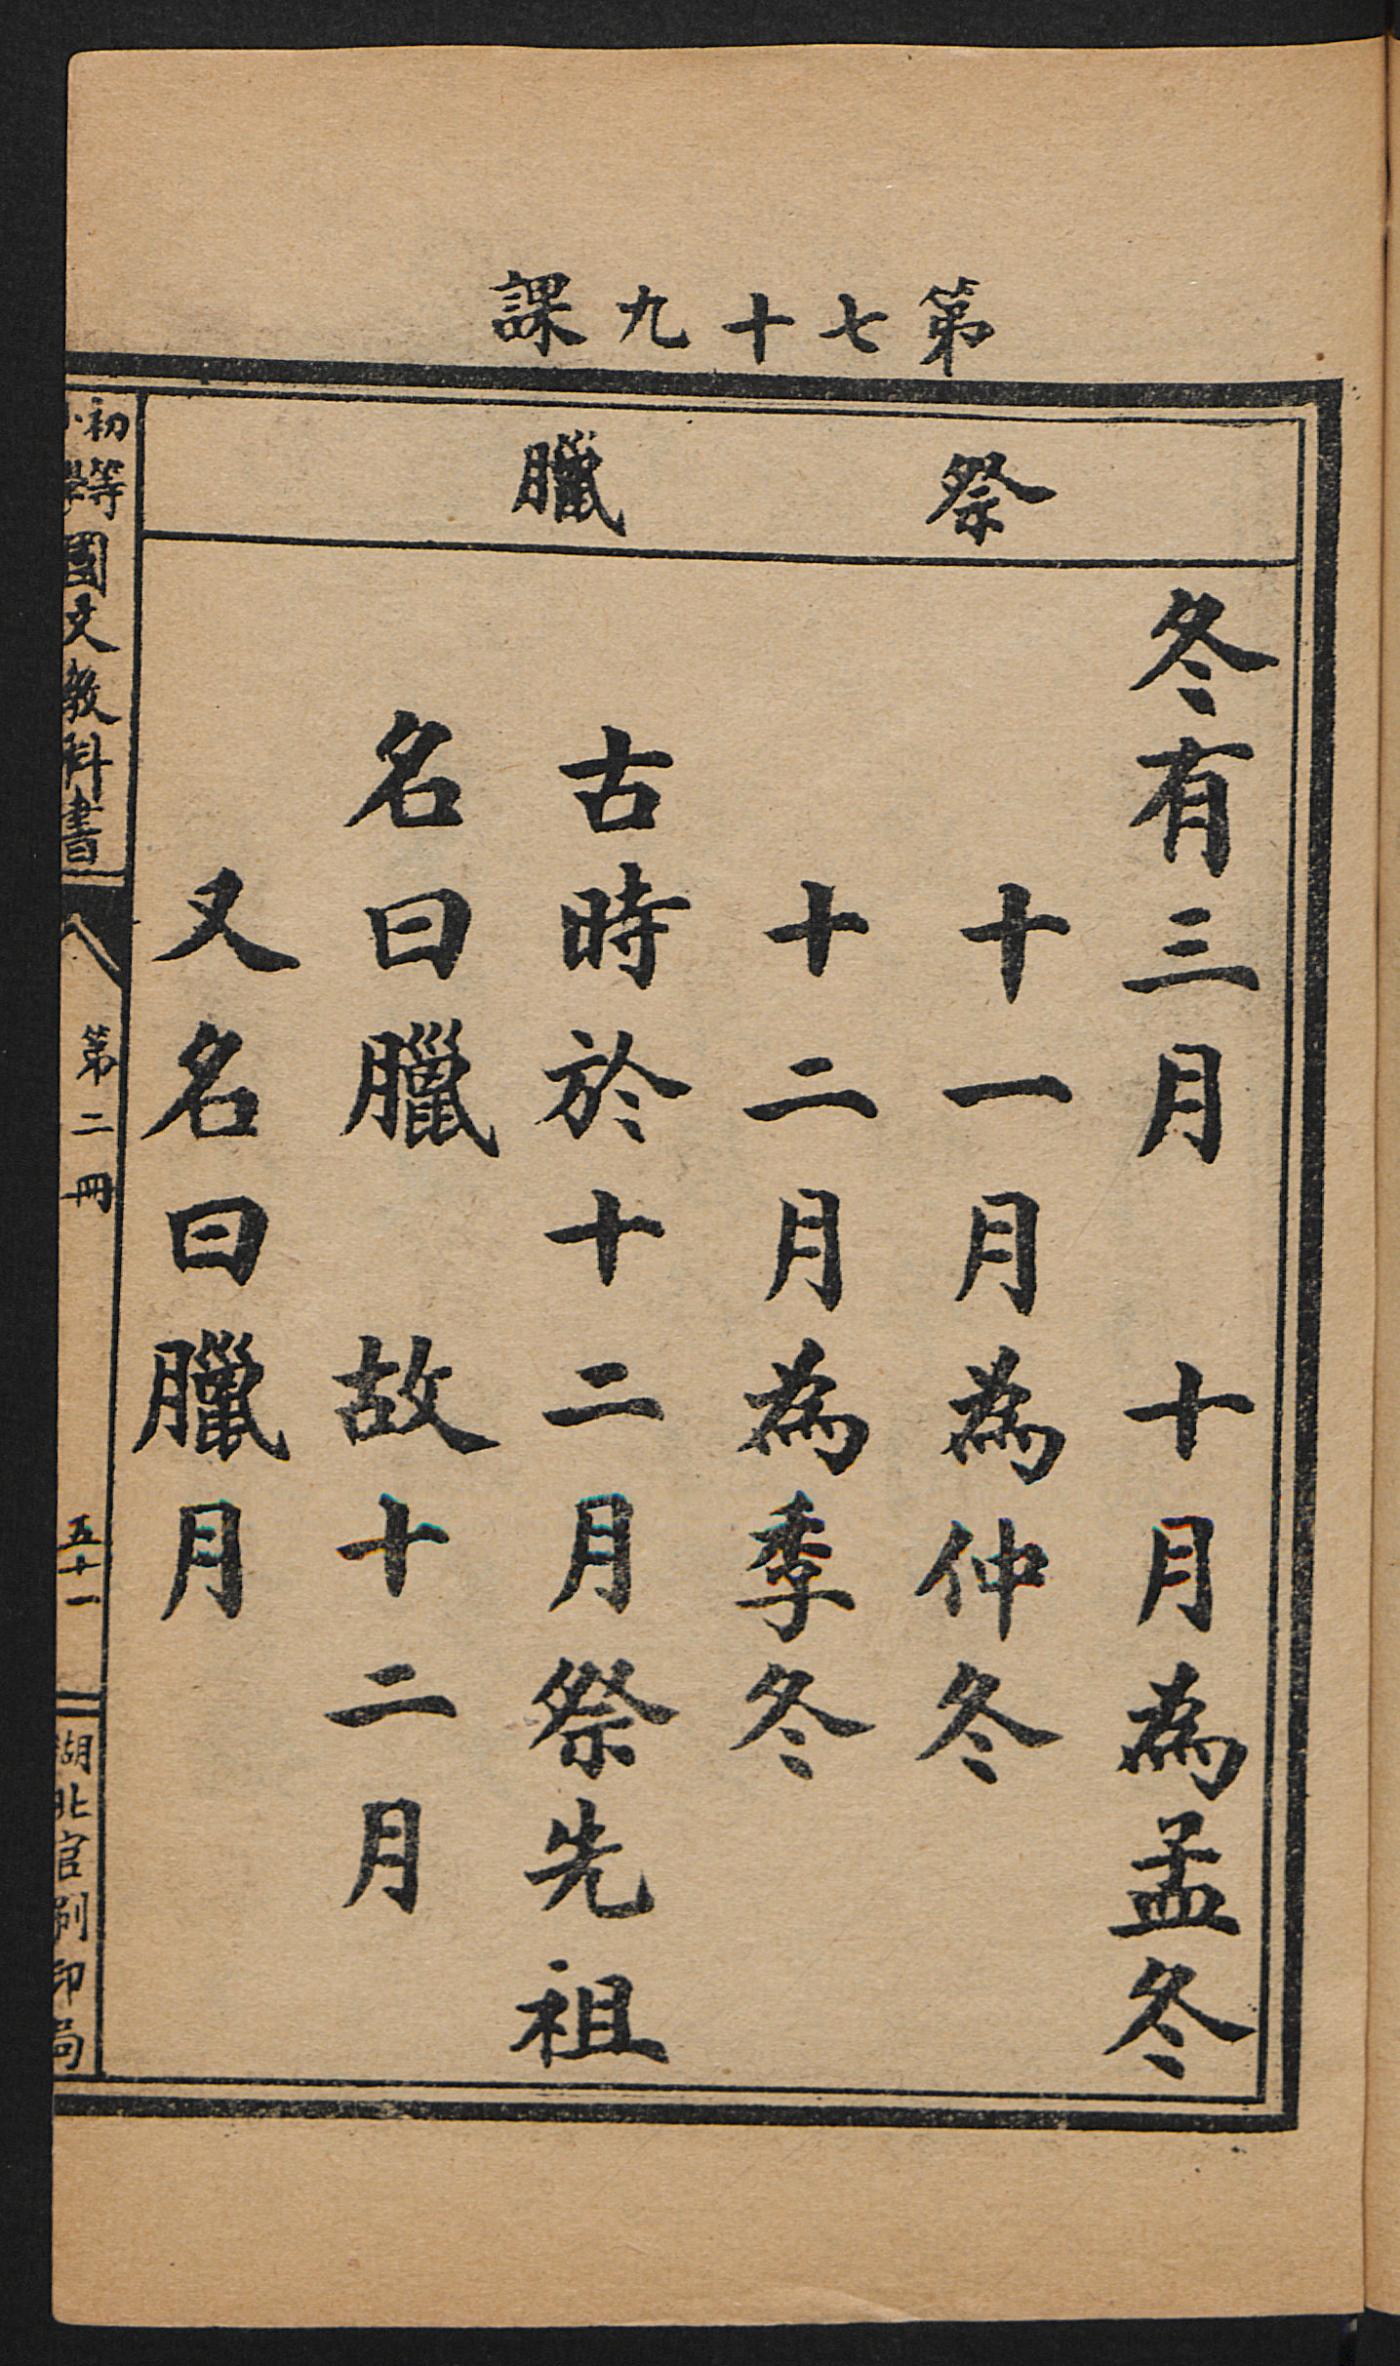 第七十九課
祭 臘
冬有三月 十月為孟冬
十一月為仲冬
十二月為季冬
古時於十二月祭先祖
名曰臘 故十二月
又名曰臘月
初等小學國文教科書
第二冊
五十一
湖北官刷印局